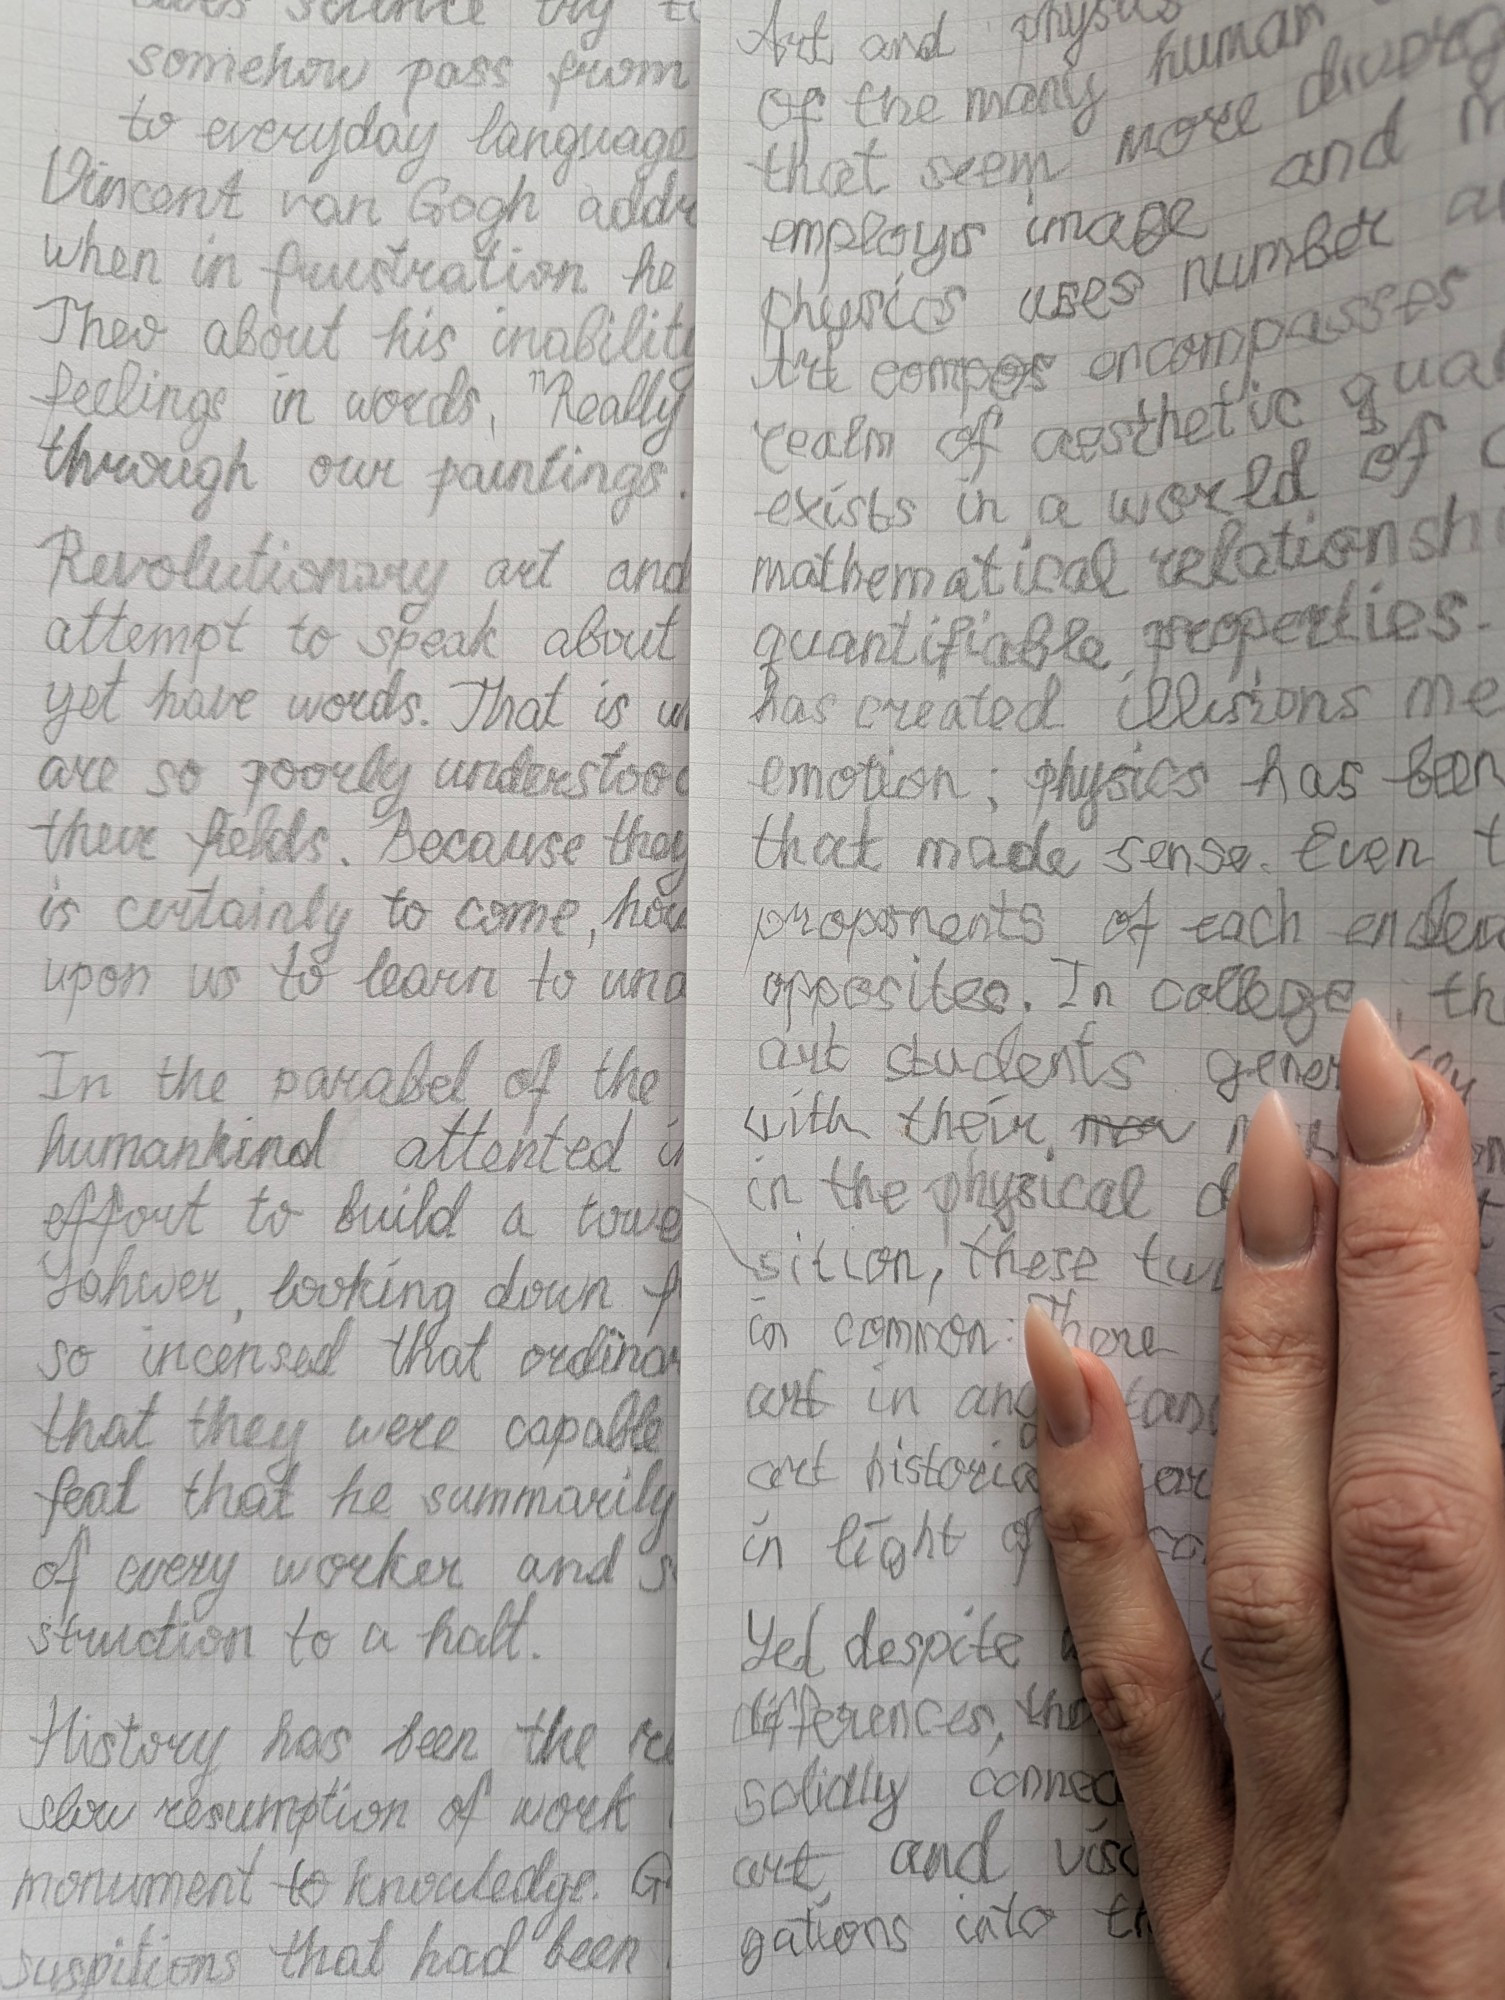 somehow pass from
to everyday language
Vincent van Gogh addr
when in frustration he
Theo about his inability
feelings in words, "Really
through our paintings.
Revolutionary art and
attempt to speak about
yet have words. That is w
are so poorly understood
their fields. Because they
is certainly to come, how
upon us to learn to und
In the parabel of the
humankind attented i
effort to build a towe
Yahwer, looking down f
so incensed that ordinar
that they were capable
feat that he summarily
of every worker and s
struction to a halt.
History has been the re
slow resumption of work
monument to knowledge. G
suspitions that had been
Art and physics
of the many human
that seem more diverg
employs image and m
physics uses number a
Art compos encompasses
realm of aesthetic qual
exists in a world of c
mathematical relationsh
quantifiable properties.
has created illusions me
emotion; physics has been
that made sense. Even t
proponents of each endea
opposites. In college, th
art students gener
with their
in the physical d
sition, these tw
in common: There
art in any stan
art historia
in light of
Yet despite
differences, the
solidly connec
art, and visi
gations into th